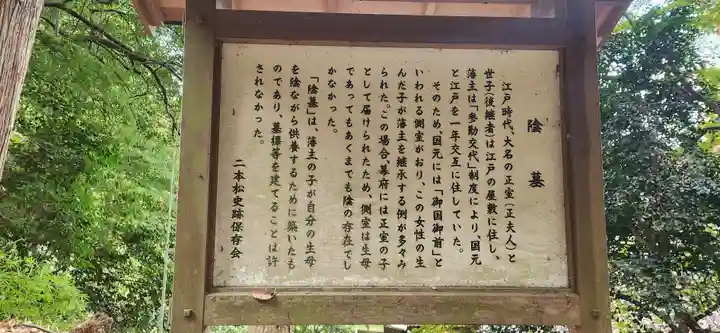 陰墓
江戸時代、大名の正室(正夫人)と
世子(後継者)は江戸の屋敷に住し、
藩主は「参勤交代」制度により、国元
と江戸を一年交互に住していた。
そのため、国元には「御国御前」と
いわれる側室がおり、この女性の生
んだ子が藩主を継承する例が多々み
られた。この場合、幕府には正室の子
として届けられたため、側室は生母
であってもあくまでも陰の存在でし
かなかった。
「陰墓」は、藩主の子が自分の生母
を陰ながら供養するために築いたも
のであり、墓標等を建てることは許
されなかった。
二本松史跡保存会